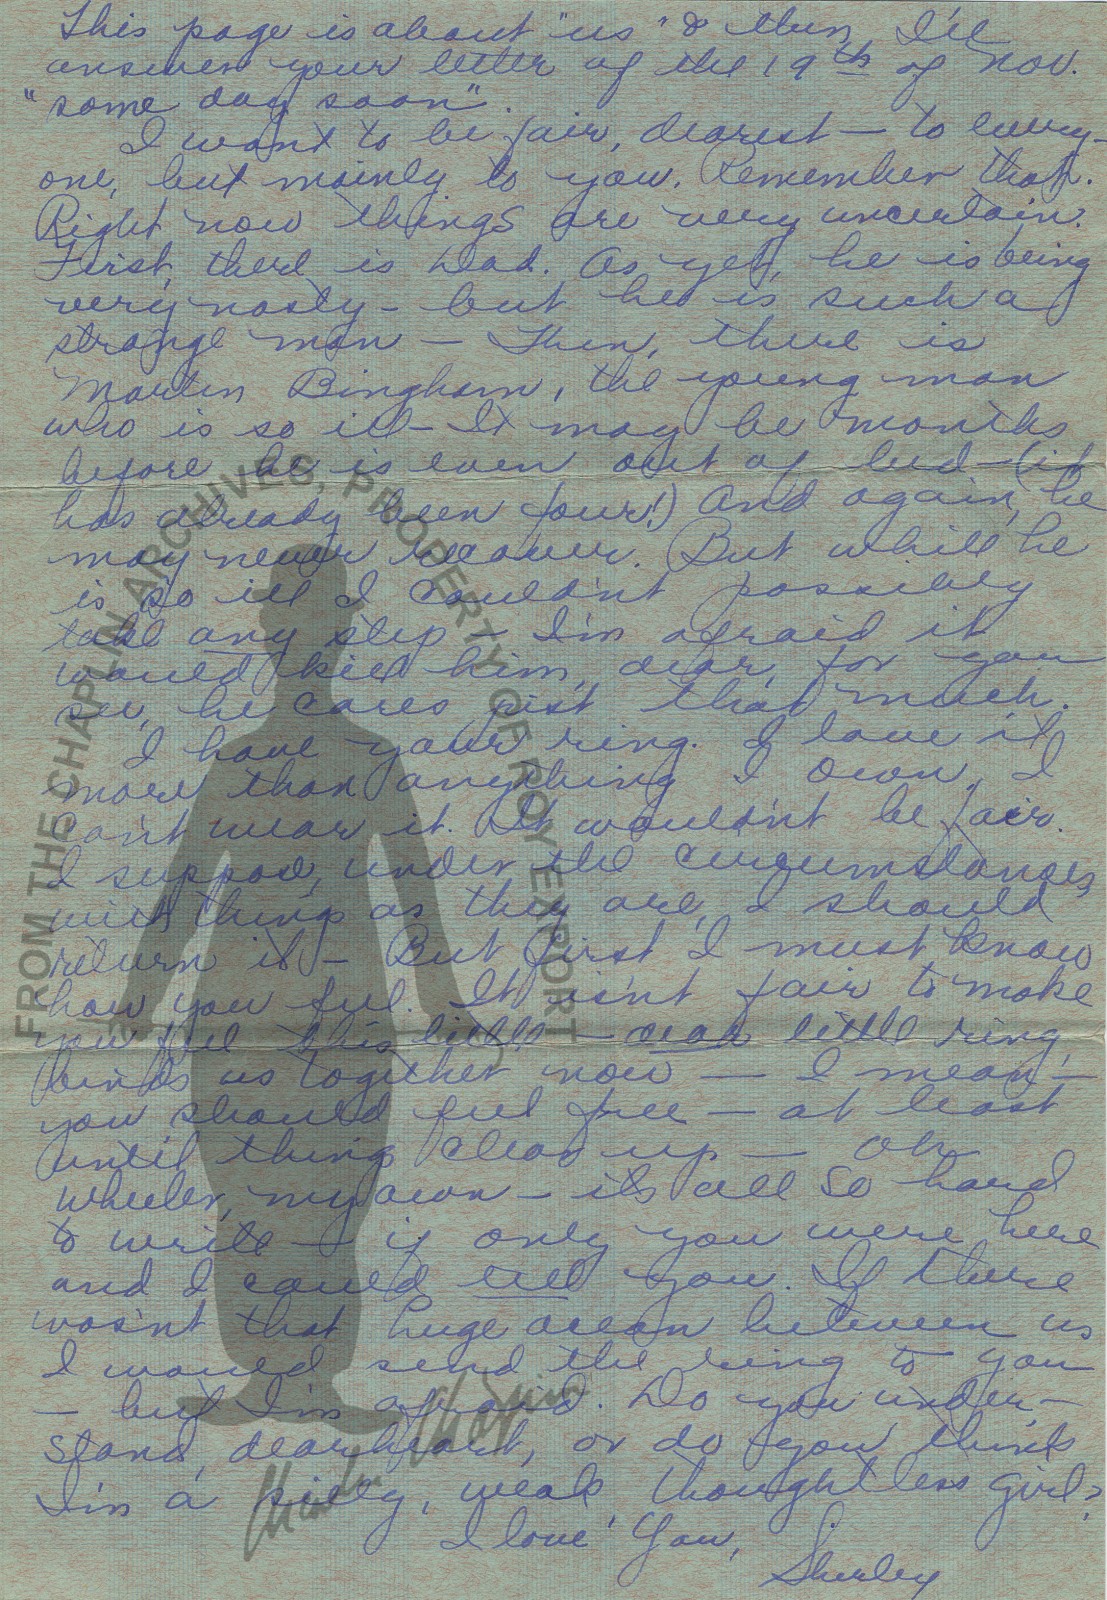 This page is about "us" & then, I'll
answer your letter of the 19th of Nov.
"some day soon".
I want to be fair, dearest — to every-
one, but mainly to you. Remember that.
Right now things are very uncertain.
First, there is Dad. As yet, he is being
very nasty — but he is such a
strange man — Then, there is
Martin Bingham, the young man
who is so ill — It may be months
before he is even out of bed — (it
has already been four!) And again, he
may never recover. But while he
is so ill I couldn't possibly
take any step — I'm afraid it
would kill him, dear, for you
see, he cares just that much.
I have your ring. I love it
more than anything I own, I
can't wear it. It wouldn't be fair.
I suppose, under the circumstances,
with things as they are, I should
return it — But first I must know
how you feel. It isn't fair to make
you feel this little — dear little ring,
binds us together now — I mean —
you should feel free — at least
until things clear up — oh
Wheeler, my own — it's all so hard
to write — if only you were here
and I could tell you. If there
wasn't that huge ocean between us
I would send the ring to you
— but I'm afraid. Do you under-
stand, dearheart, or do you think
I'm a silly, weak, thoughtless girl?
I love You,
Shirley
FROM THE CHAPLIN ARCHIVES, PROPERTY OF ROY EXPORT
Charles Chaplin